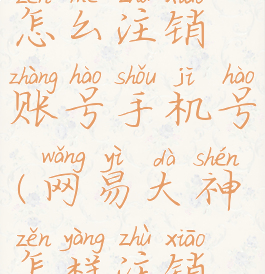 zěn me zhù xiāo
怎么注销
zhàng hào shǒu jī hào
账号手机号
wǎng yì dà shén
(网易大神
zěn yàng zhù xiāo
怎样注销